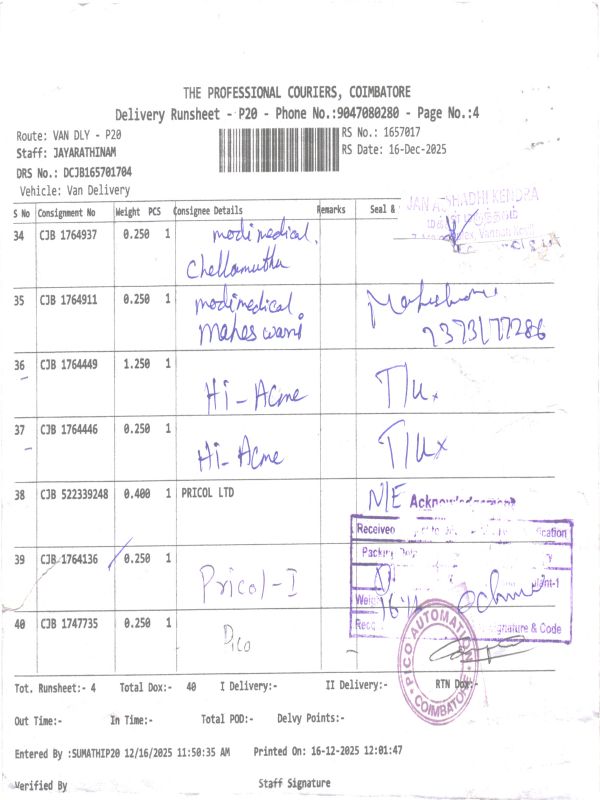 THE PROFESSIONAL COURIERS, COIMBATORE
Delivery Runsheet - P20 - Phone No.:9047080280 - Page No.:4
Route: VAN DLY - P20
RS No.: 1657017
Staff: JAYARATHINAM
RS Date: 16-Dec-2025
DRS No.: DCJB165701704
Vehicle: Van Delivery
S No Consignment No Weight PCS Consignee Details Remarks Seal &
JAN AUSHADHI KENDRA
மக்கள் மருந்தகம்
34 CJB 1764937 0.250 1 modimedical.
Chellamuthu
35 CJB 1764911 0.250 1 modimedical
Maheswari
36 CJB 1764449 1.250 1 Hi-Acme
37 CJB 1764446 0.250 1 Hi-Acme
38 CJB 522339248 0.400 1 PRICOL LTD N/E
Acknowledgement
Received
39 CJB 1764136 0.250 1 Pricol-I
Signature & Code
40 CJB 1747735 0.250 1 Pico
PICO AUTOMATION
COIMBATORE
Tot. Runsheet:- 4 Total Dox:- 40 I Delivery:- II Delivery:- RTN Dox:-
Out Time:- In Time:- Total POD:- Delvy Points:-
Entered By :SUMATHIP20 12/16/2025 11:50:35 AM Printed On: 16-12-2025 12:01:47
Verified By Staff Signature